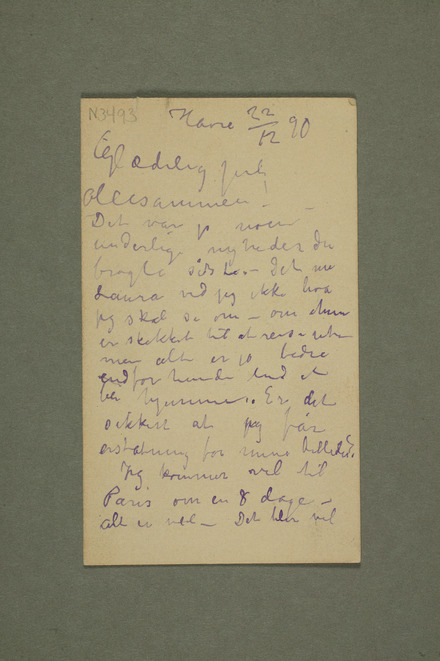 N3493
Havre 22/12 90
Glædelig jul
allesammen!
Det var jo noen
underlige nyheder du
bragte sidst. – Det med
Laura ved jeg ikke hva
jeg skal si om – om hun
er skikket til at reise
men alt er jo bedre
end for hende end at
hjemme. Er det
sikkert at jeg får
erstatning for mine billeder.
Jeg kommer vel til
Paris om en 8 dage –
alt er vel – Det blir vel